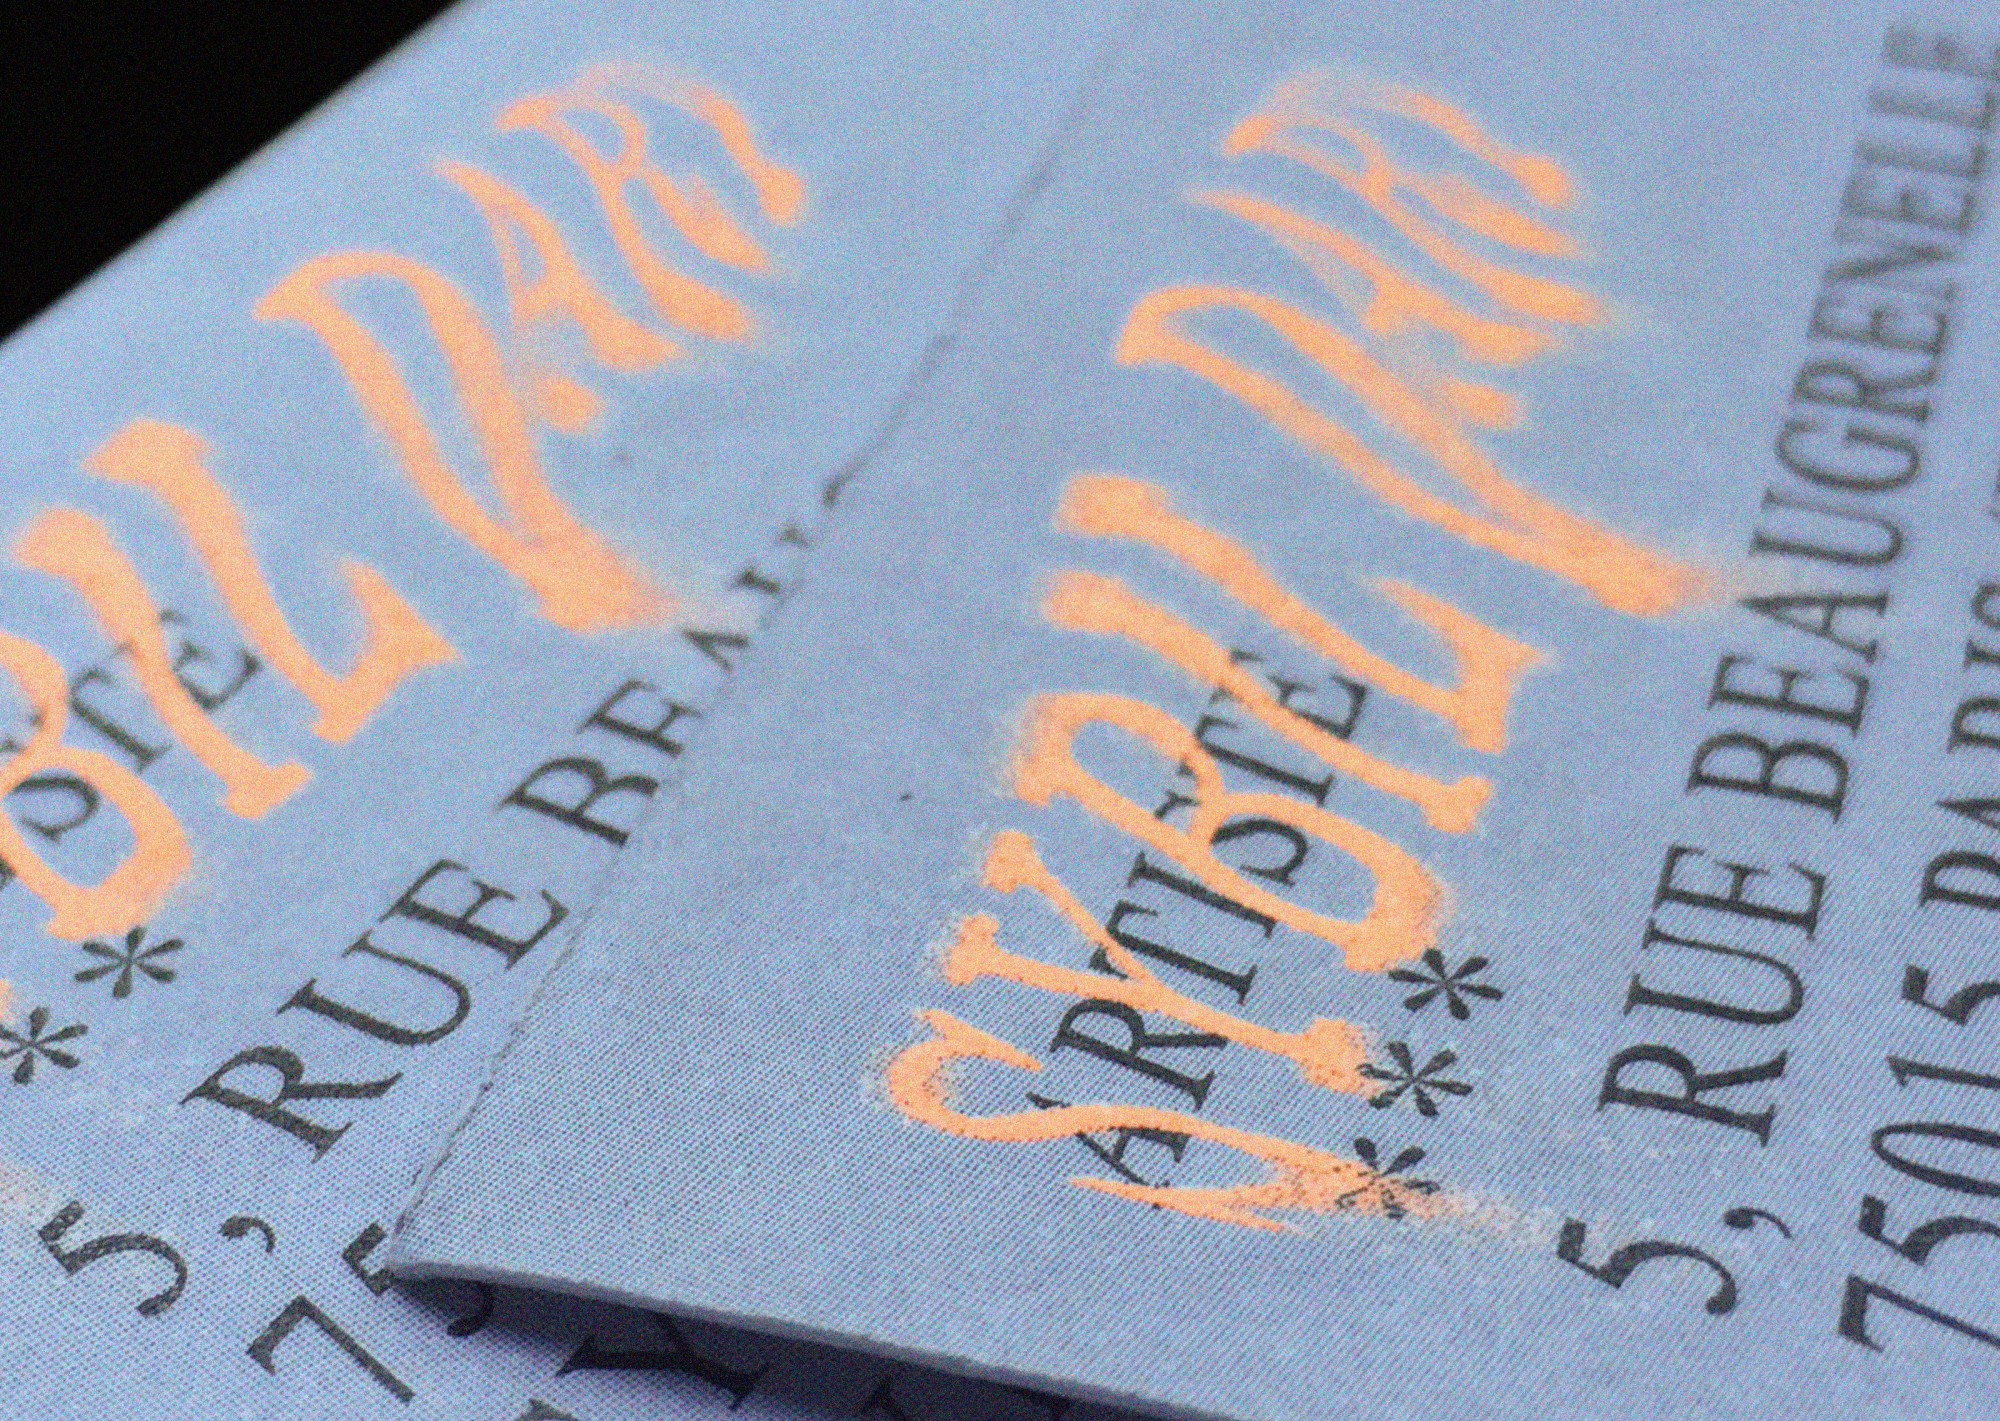 BIL DARI
STE
**
5, RUE BEA
75
SYBIL DARI
ARTISTE
***
5, RUE BEAUGRENELLE
75015 PARIS